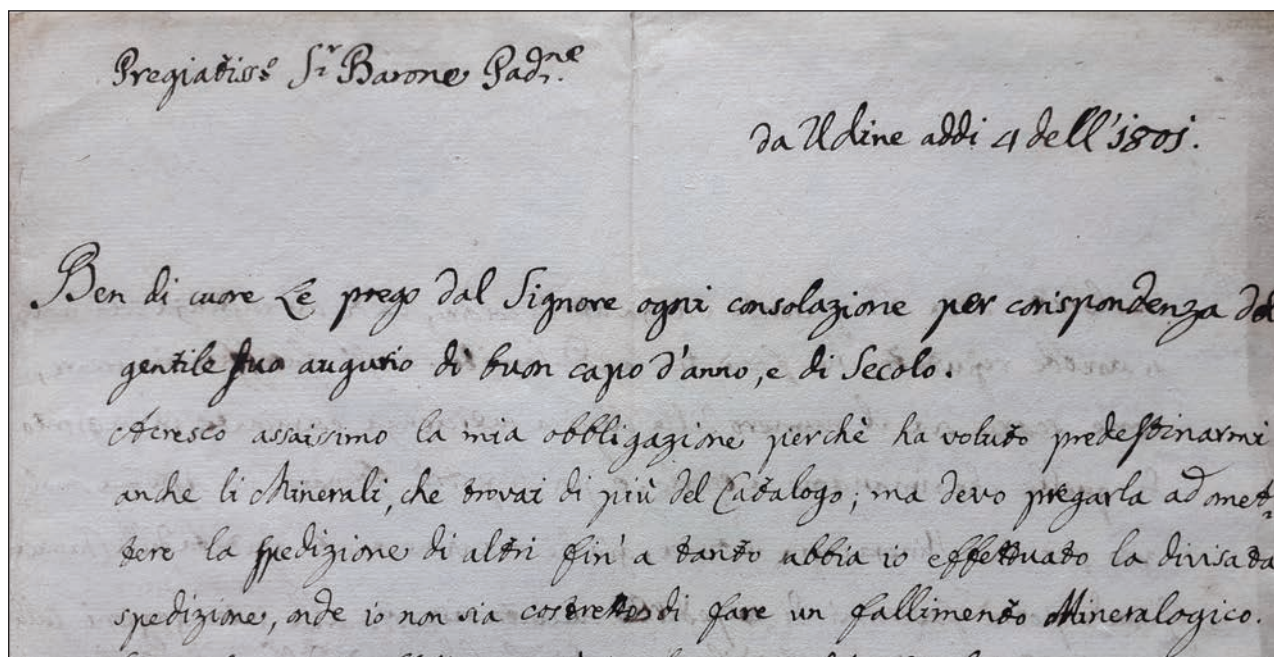 Pregiatiss.o S.r Barone Pad.ne
da Udine addi 4 dell'1801.
Ben di cuore Le prego dal Signore ogni consolazione per corispondenza del
gentile suo augurio di buon capo d'anno, e di Secolo.
Acresco assaissimo la mia obbligazione perchè ha voluto predestinarmi
anche li Minerali, che trovai di più del Catalogo; ma devo pregarla ad omet=
tere la spedizione di altri fin' a tanto abbia io effettuato la divisata
spedizione, onde io non sia costretto di fare un fallimento Mineralogico.